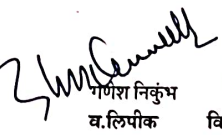 गणेश निकुंभ
व.लिपीक वि